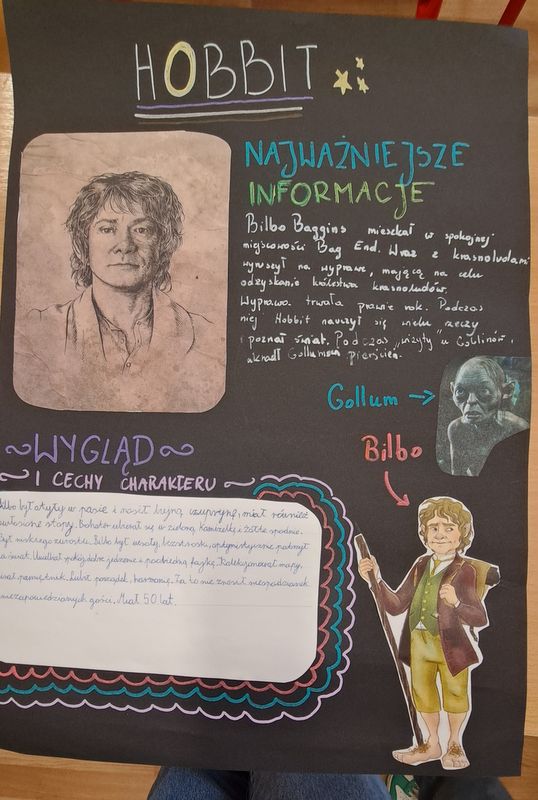 HOBBIT
NAJWAŻNIEJSZE
INFORMACJE
Bilbo Baggins mieszkał w spokojnej
miejscowości Bag End. Wraz z krasnoludami
wyruszył na wyprawę, mającą na celu
odzyskanie królestwa krasnoludów.
Wyprawa trwała prawie rok. Podczas
niej Hobbit nauczył się wielu rzeczy
i poznał świat. Podczas „wizyty" u Goblinów,
ukradł Gollumowi pierścień.
Gollum →
Bilbo
~WYGLĄD~
~ I CECHY CHARAKTERU ~
Bilbo był otyły w pasie i nosił bujną czuprynę, miał również
owłosione stopy. Bohater ubierał się w zieloną kamizelkę i żółte spodnie.
Był niskiego wzrostu. Bilbo był wesoły, beztroski, optymistycznie patrzył
na świat. Uwielbiał spokój, dobre jedzenie i
Kolekcjonował mapy,
pamiętnik. Lubił porządek, harmonię. Za to nie znosił niespodzianek
niezapowiedzianych gości. Miał 50 lat.